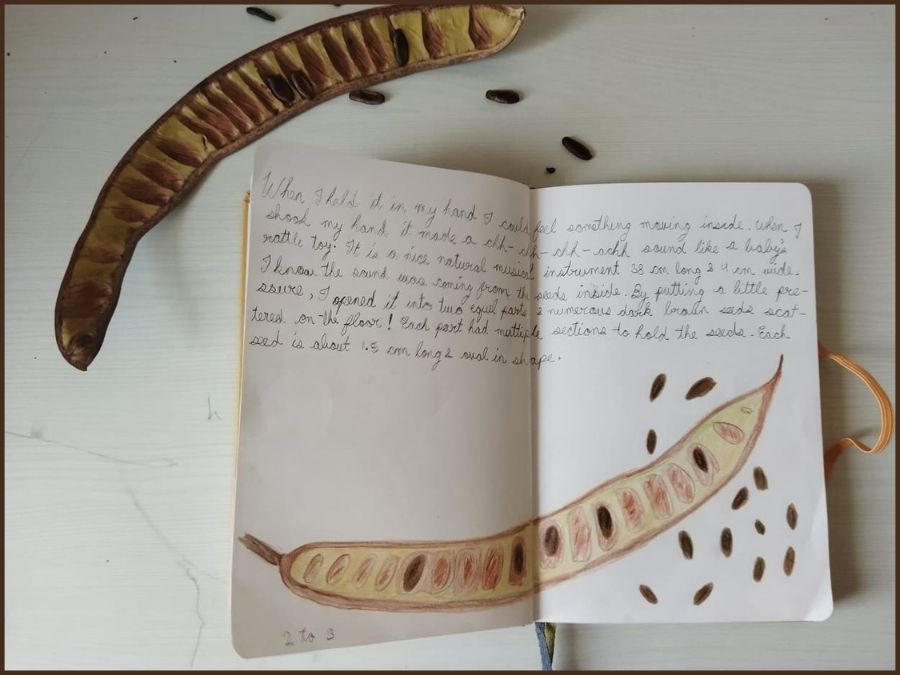 When I held it in my hand I could feel something moving inside. When I
shook my hand it made a chh- chh- chh- chh sound like a baby's
rattle toy. It is a nice natural musical instrument 38 cm long & 4 cm wide.
I know the sound was coming from the seeds inside. By putting a little pre-
ssure, I opened it into two equal parts & numerous dark brown seeds scat-
tered on the floor! Each part had multiple sections to hold the seeds. Each
seed is about 1.5 cm long & oval in shape.
2 to 3